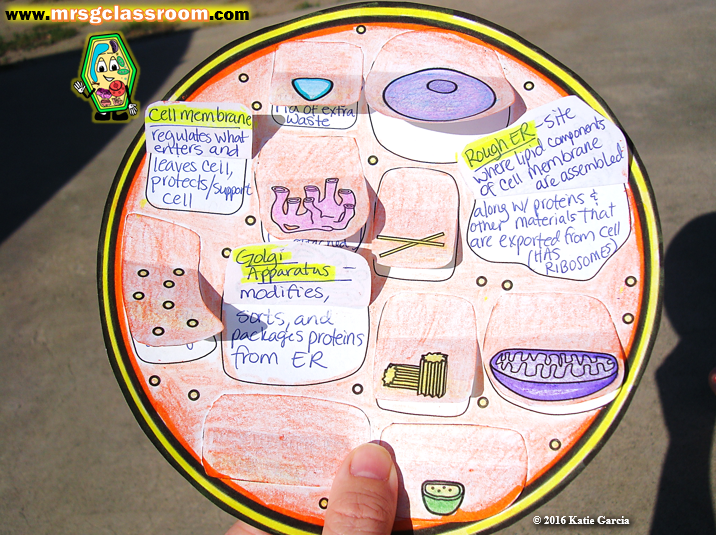 www.mrsgclassroom.com
of extra
waste
Cell membrane
regulates what
enters and
leaves cell,
protects/support
cell
Rough ER - site
where lipid components
of cell membrane
are assembled
along w/ protens &
other materials that
are exported from cell
(HAS
RIBOSOMES)
Golgi
Apparatus -
modifies,
sorts, and
packages proteins
from ER
© 2016 Katie Garcia